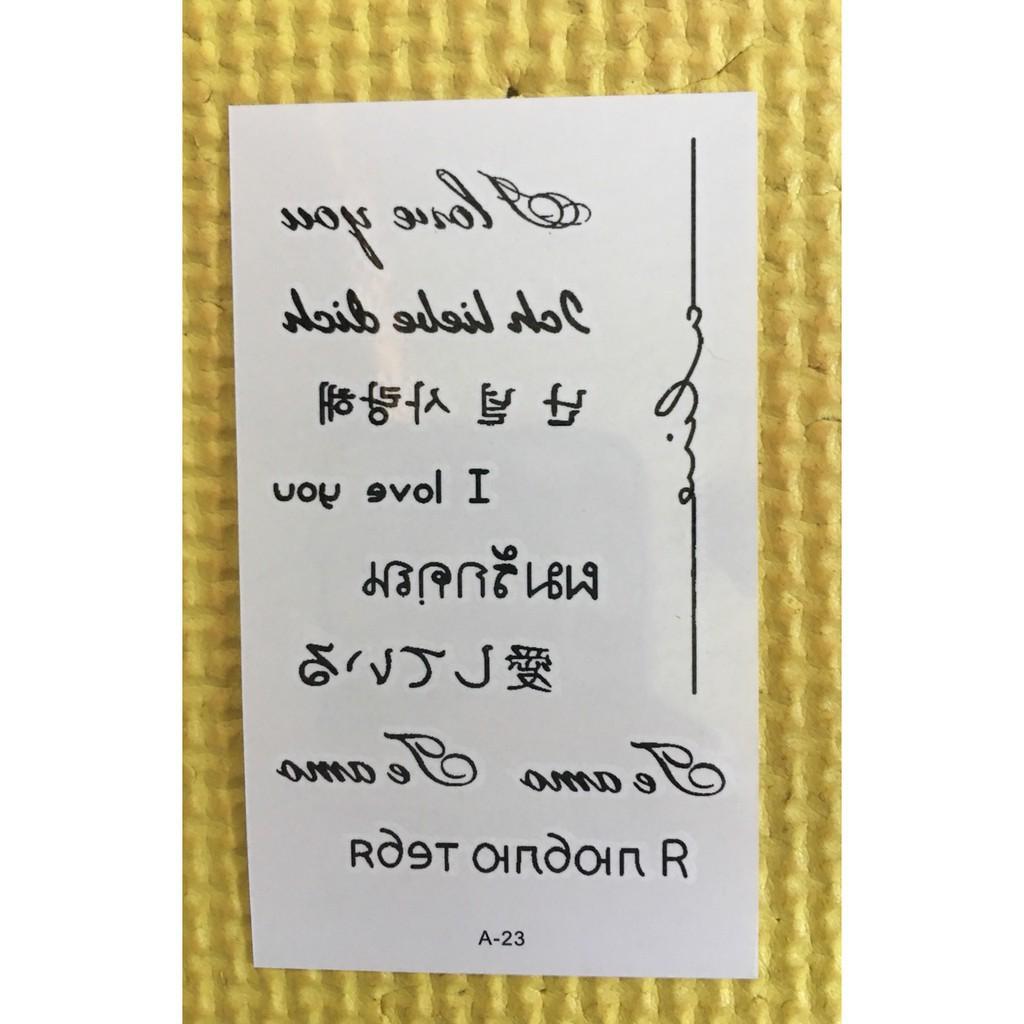 I love you
Ich liebe dich
난 널 사랑해
I love you
ผมรักคุณ
愛している
Te amo Te amo
Я люблю тебя
A-23